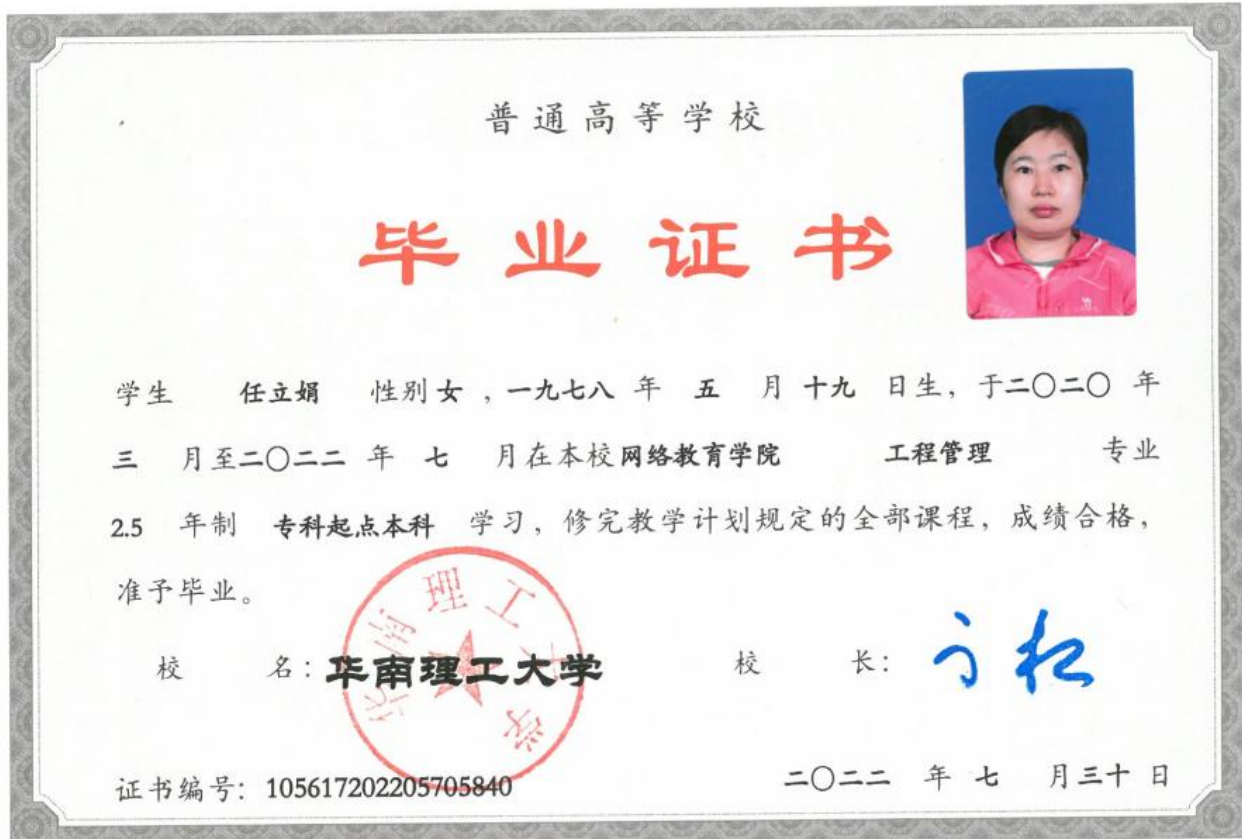 普通高等学校
毕业证书
学生 任立娟 性别 女 , 一九七八 年 五 月 十九 日生, 于二〇二〇 年
三 月至二〇二二 年 七 月在本校 网络教育学院 工程管理 专业
2.5 年制 专科起点本科 学习, 修完教学计划规定的全部课程, 成绩合格,
准予毕业。
华南理工大学
校 名: 华南理工大学 校 长:
证书编号: 105617202205705840 二〇二二 年 七 月三十 日